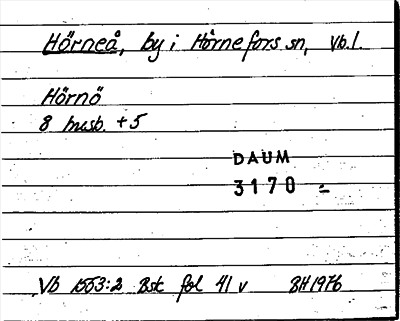 Hörneå, by i Hörnefors sn, Vb.l.
Hörnö
8 husb. +5
DAUM
3170 -
Vb 1553:2 Bsk fol 41 v BH 1976